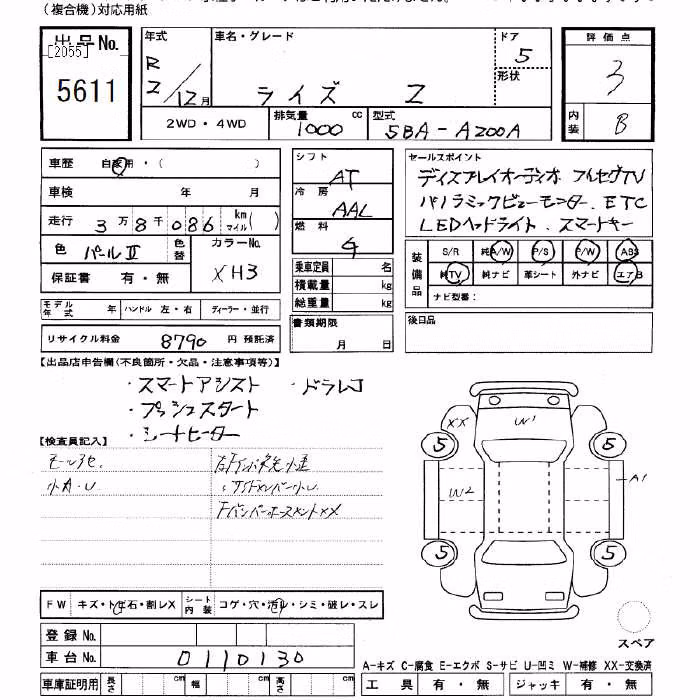 （複合機）対応用紙
出品No.
[2055]
5611
年式
R
2/12月
車名・グレード
ライズ Z
ドア
5
形状
評価点
3
内装
B
2WD・4WD
排気量 1000 cc
型式 5BA-A200A
車歴 自家用・( )
車検 年 月
走行 3万8千086 km マイル( )
色 パールII
色替
カラーNo.
XH3
保証書 有・無
シフト
AT
冷房
AAL
燃料
G
乗車定員 名
積載量 kg
総重量 kg
書類期限
月 日
セールスポイント
ディスプレイオーディオ フルセグTV
パノラミックビューモニター. ETC
LEDヘッドライト. スマートキー
装備品
S/R 純A/W P/S P/W ABS
純TV 純ナビ 革シート 外ナビ エアB
ナビ型番：
後日品
モデル年式 年 ハンドル 左・右 ディーラー・並行
リサイクル料金 8790 円 預託済
【出品店申告欄（不良箇所・欠品・注意事項等）】
・スマートアシスト ・ドラレコ
・プッシュスタート
・シートヒーター
【検査員記入】
小A・U
XX
W1
5
5
W2
A1
5
5
スペア
FW キズ・ト石・割レX
シート内装 コゲ・穴・汚レ・シミ・破レ・スレ
登録No.
車台No. 0110130
車庫証明用 長さ cm 幅 cm 高さ cm
A-キズ C-腐食 E-エクボ S-サビ U-凹ミ W-補修 XX-交換済
工具 有・無 ジャッキ 有・無